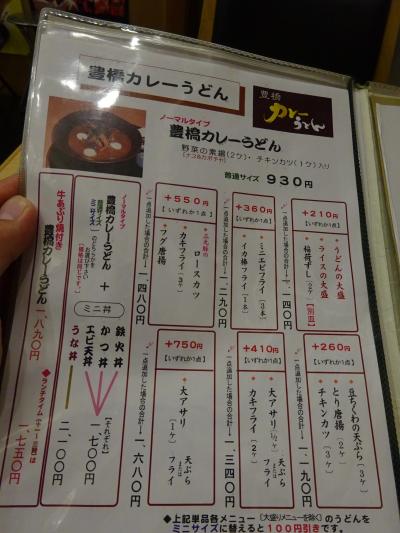 豊橋カレーうどん
豊橋
カレーうどん
ノーマルタイプ
豊橋カレーうどん
野菜の素揚(2ケ)・チキンカツ(1ケ)入り
(ナス&カボチャ)
普通サイズ 930円
+210円
【いずれか1点】
・うどんの大盛
・ライスの大盛
・稲荷ずし(2ケ)【別皿】
一点追加した場合の合計→一、一四〇円
+360円
【いずれか1点】
・ミニエビフライ(3本)
・イカ棒フライ(1本)
一点追加した場合の合計→一、二九〇円
+550円
【いずれか1点】
・ロースカツ
・カキフライ(3ケ)
・フグ唐揚
一点追加した場合の合計→一、四八〇円
+260円
【いずれか1点】
・豆ちくわの天ぷら(3ケ)
・とり唐揚(2ケ)
・チキンカツ(3ケ)
一点追加した場合の合計→一、一九〇円
+410円
【いずれか1点】
・大アサリ(1/2ケ) 天ぷら または フライ
・カキフライ(2ケ)
一点追加した場合の合計→一、三四〇円
+750円
【いずれか1点】
・大アサリ(1ケ) 天ぷら または フライ
一点追加した場合の合計→一、六八〇円
ノーマルタイプ
豊橋カレーうどん + ミニ丼
普通サイズ
ミニサイズ
のどちらかをお選び下さい
(価格は同じです。)
鉄火丼
かつ丼
エビ天丼
【それぞれ】
一、七〇〇円
うな丼
二、一〇〇円
牛あぶり焼付き
豊橋カレーうどん 一、八九〇円
◆ランチタイム(十一~三時)は
一、七五〇円
◆上記単品各メニュー(大盛りメニューを除く)のうどんを
ミニサイズに替えると100円引きです。